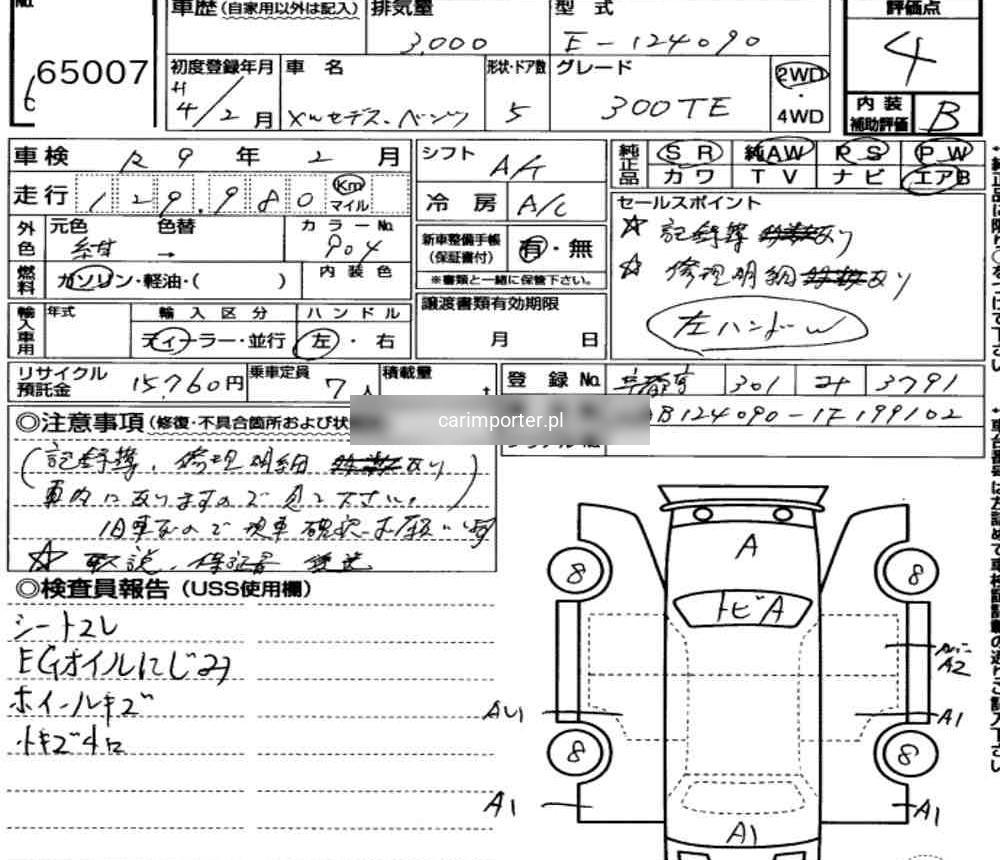 No.
65007
車歴(自家用以外は記入)
排気量
3,000
型式
E-124090
評価点
4
初度登録年月
H
4/2月
車名
メルセデス.ベンツ
形状・ドア数
5
グレード
300TE
2WD
・
4WD
内装
補助評価
B
車検 R9年2月
走行 129,980 Km マイル
外色
元色 色替 カラーNo.
紺 → 904
燃料
ガソリン・軽油・( )
内装色
輸入車用
年式
輸入区分
ディーラー・並行
ハンドル
左・右
シフト
A/T
冷房 A/C
新車整備手帳
(保証書付)
有・無
※書類と一緒に保管下さい。
譲渡書類有効期限
月 日
純正品
SR 純AW PS PW
カワ TV ナビ エアB
セールスポイント
☆ 記録簿 あり
☆ 修理明細 あり
左ハンドル
リサイクル
預託金
15,760円
乗車定員
7人
積載量
t
登録No. 301 3791
B124090-1F199102
◎注意事項(修復・不具合箇所および状
carimporter.pl
(記録簿、修理明細 あり
車内にありますので見て下さい。)
旧車なので現車確認お願い
☆ 取説、保証書 後送
◎検査員報告(USS使用欄)
シートスレ
EGオイルにじみ
ホイールキズ
小キズ凹
A
トビA
8
8
8
8
A2
AU1
A1
A1
A1
A1